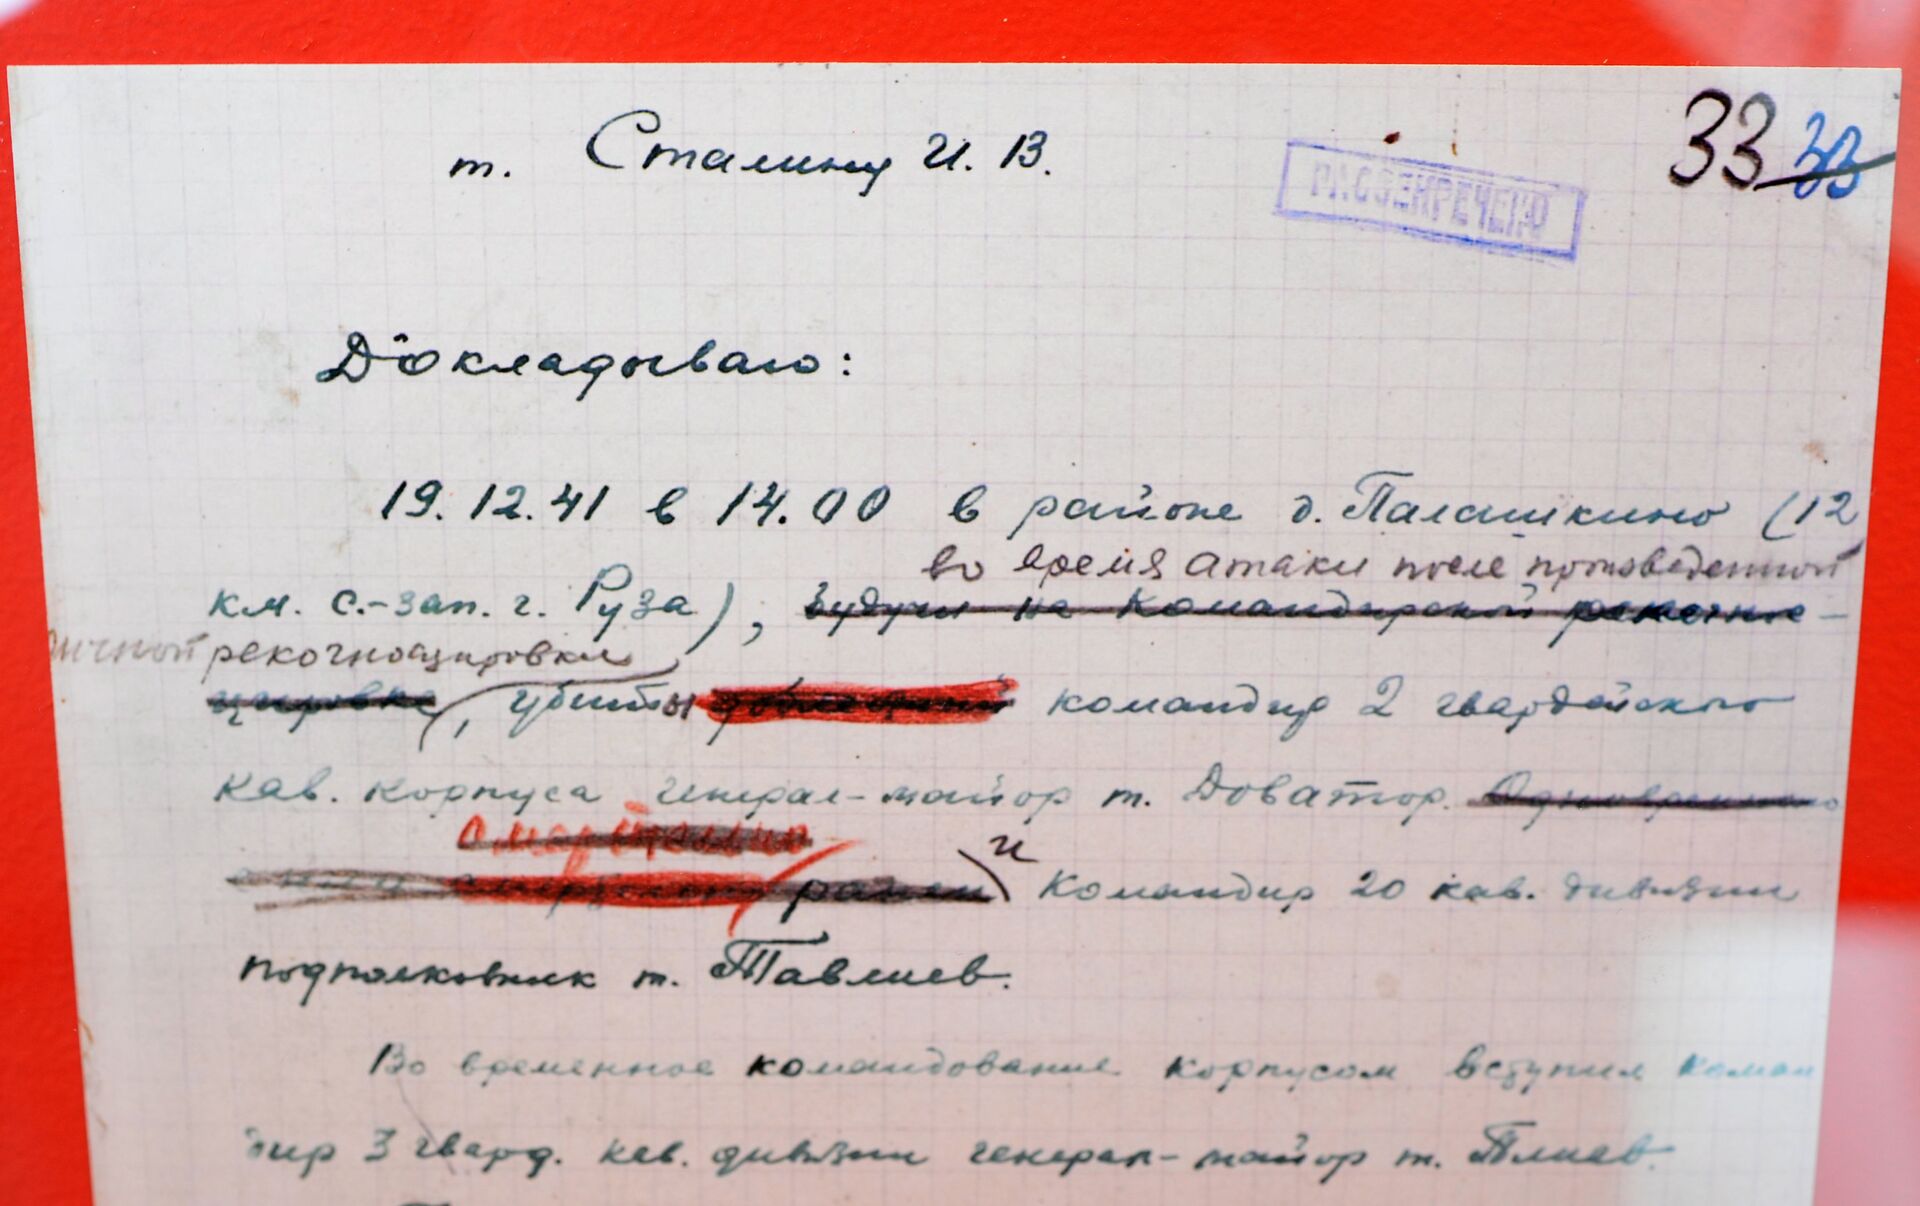 33 33
т. Сталину И. В.
РАССЕКРЕЧЕНО
Докладываю:
19.12.41 в 14.00 в районе д. Палашкино (12
во время атаки после произведенной
км. с.-зап. г. Руза), будучи на командирской рекогнос-
личной рекогносцировки
цировке, убиты командир 2 гвардейского
кав. корпуса генерал-майор т. Доватор. Одновременно
смертельно
ранен и командир 20 кав. дивизии
подполковник т. Тавлиев.
Во временное командование корпусом вступил коман
дир 3 гвард. кав. дивизии генерал-майор т. Плиев.